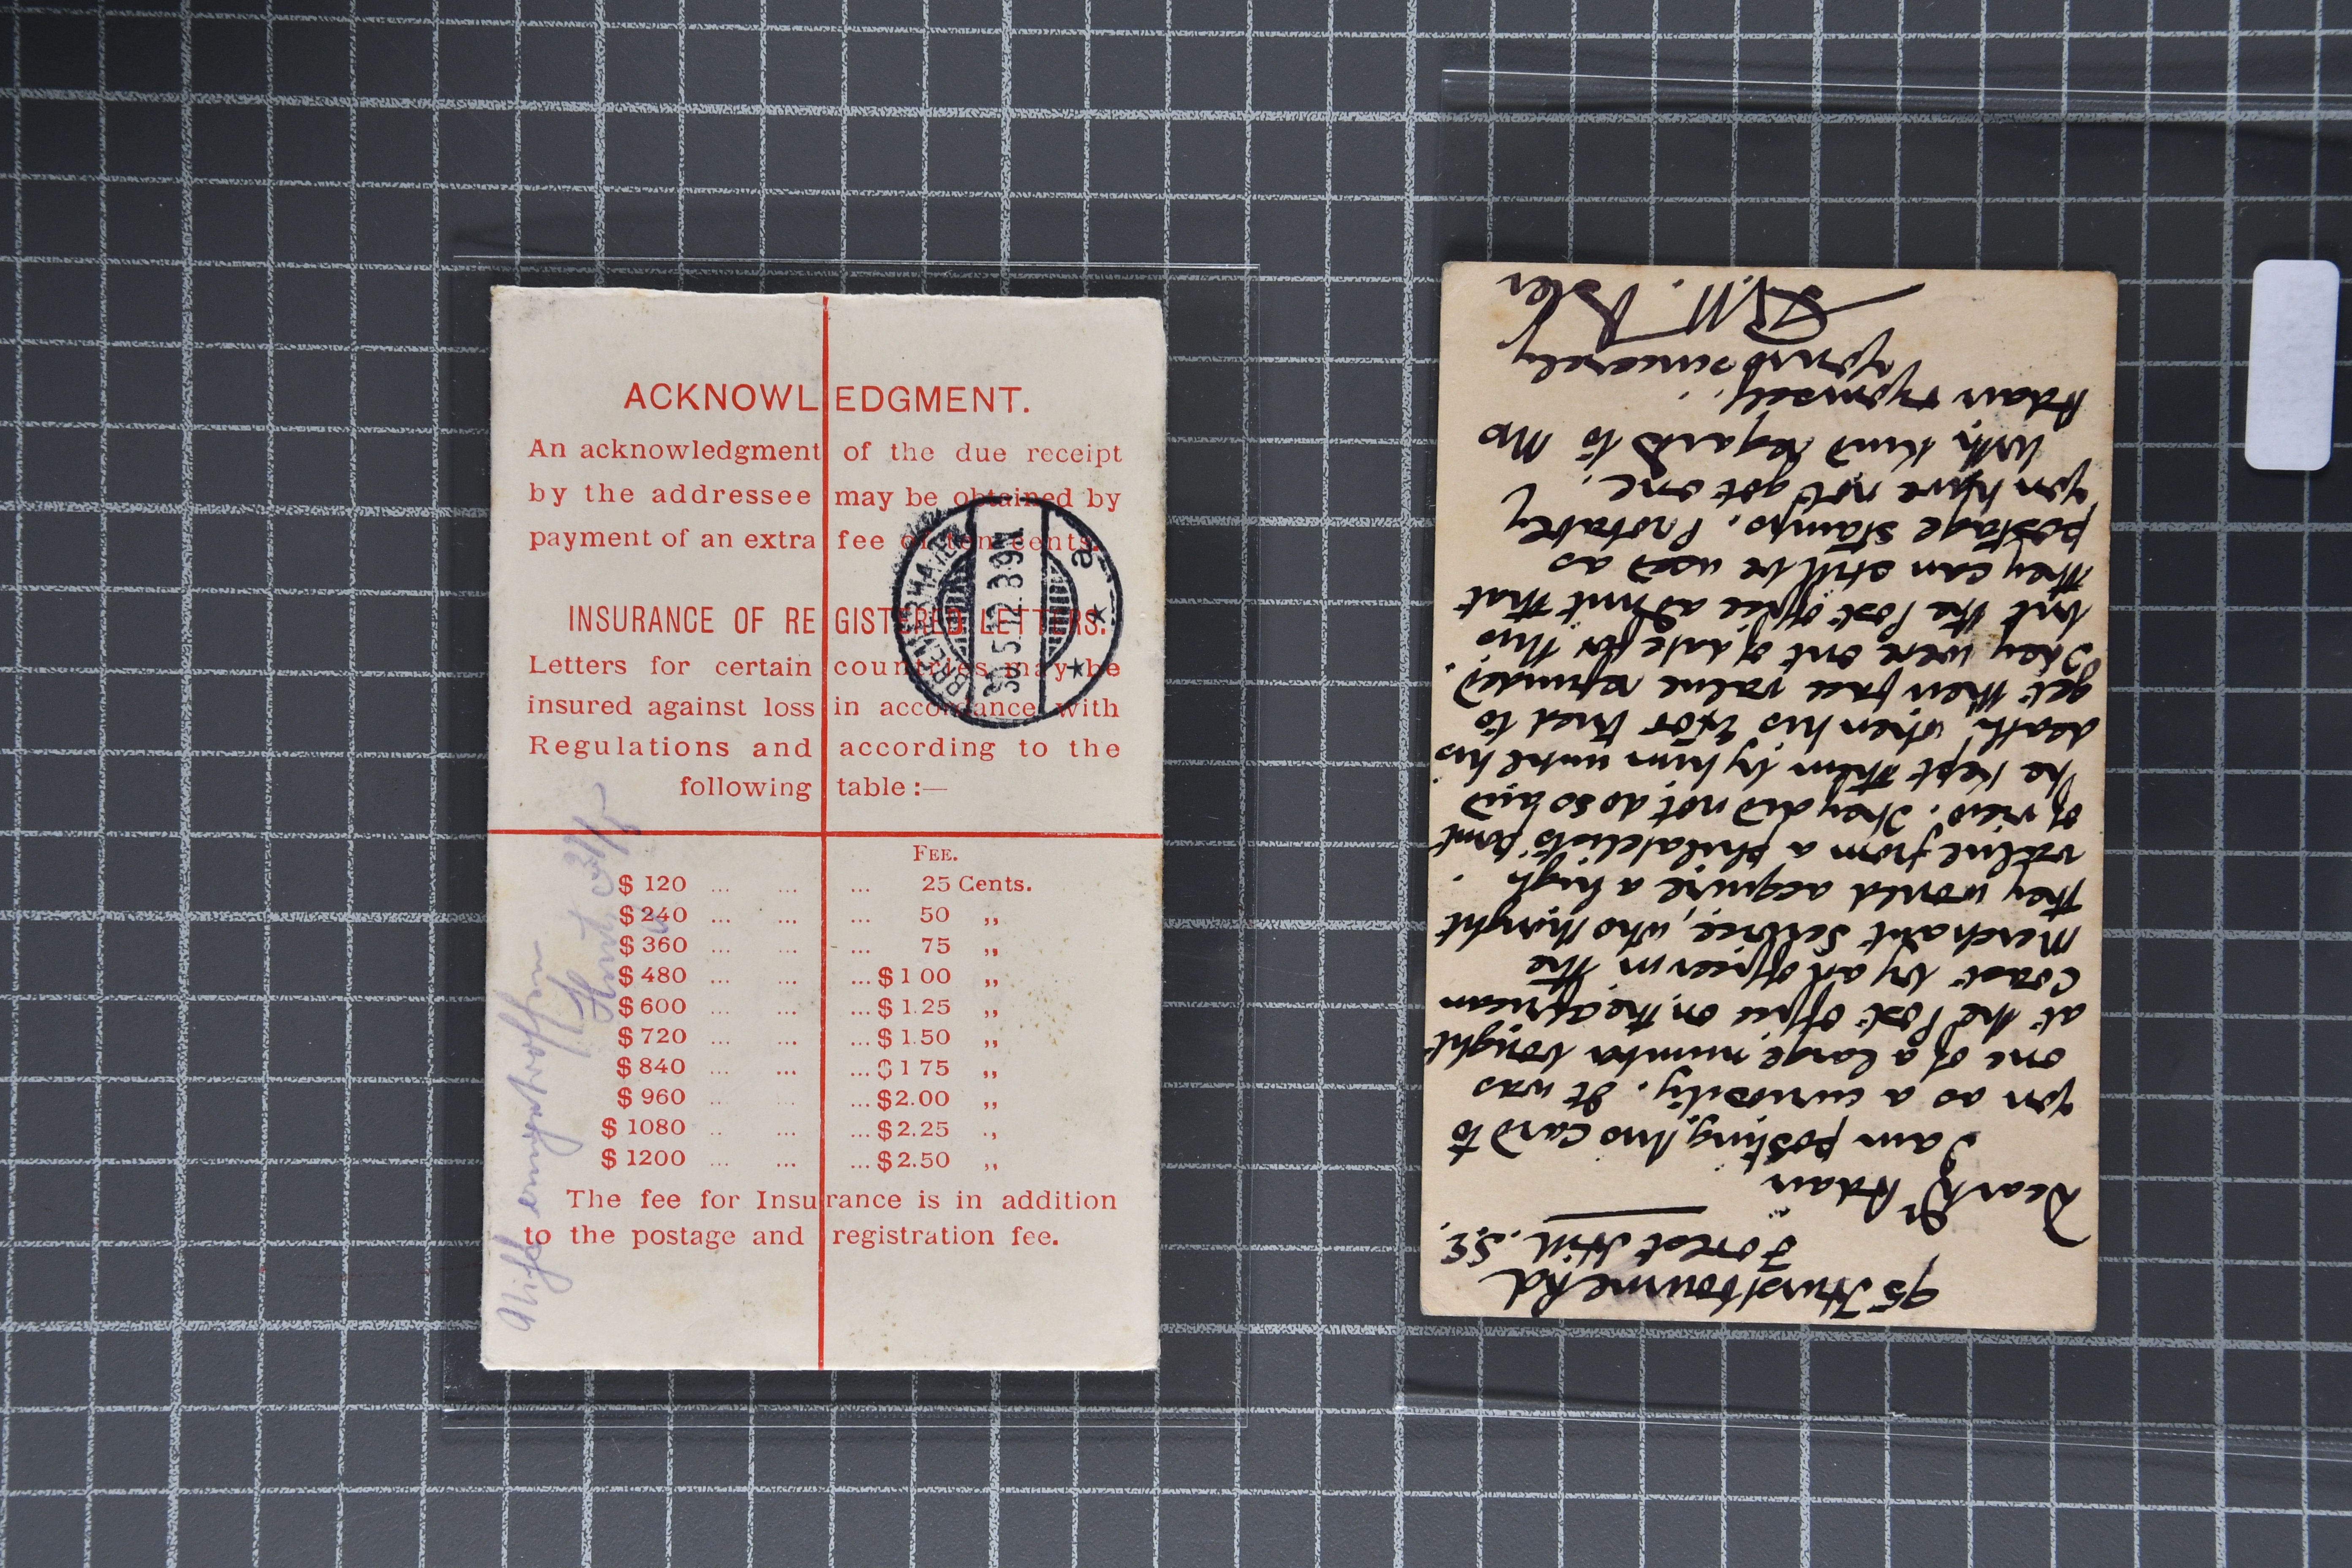 ACKNOWLEDGMENT.
An acknowledgment of the due receipt
by the addressee may be obtained by
payment of an extra fee of ten cents.
INSURANCE OF REGISTERED LETTERS.
Letters for certain countries may be
insured against loss in accordance with
Regulations and according to the
following table :—
FEE.
$ 120 ... ... ... 25 Cents.
$ 240 ... ... ... 50 ,,
$ 360 ... ... ... 75 ,,
$ 480 ... ... ... $ 1 00 ,,
$ 600 ... ... ... $ 1.25 ,,
$ 720 ... ... ... $ 1.50 ,,
$ 840 ... ... ... $ 1 75 ,,
$ 960 ... ... ... $2.00 ,,
$ 1080 ... ... ... $2.25 ,,
$ 1200 ... ... ... $2.50 ,,
The fee for Insurance is in addition
to the postage and registration fee.
BREMERHAVEN
30.5.12.8-9V.
a
95 Hurstbourne Rd
Forest Hill. S.E.
Dear Dr Adair
I am posting this card to
you as a curiosity. It was
one of a large number bought
at the Post Office on the African
Coast by an officer in the
Merchant Service, who thought
they would acquire a high
value from a philatelists point
of view. They did not do so and
he kept them by him until his
death, when his Exor tried to
get their face value refunded.
They were out of date for this
but the Post office admit that
they can still be used as
postage stamps. Probably
you have not got one.
With kind regards to Mrs
Adair & yourself.
Yours sincerely